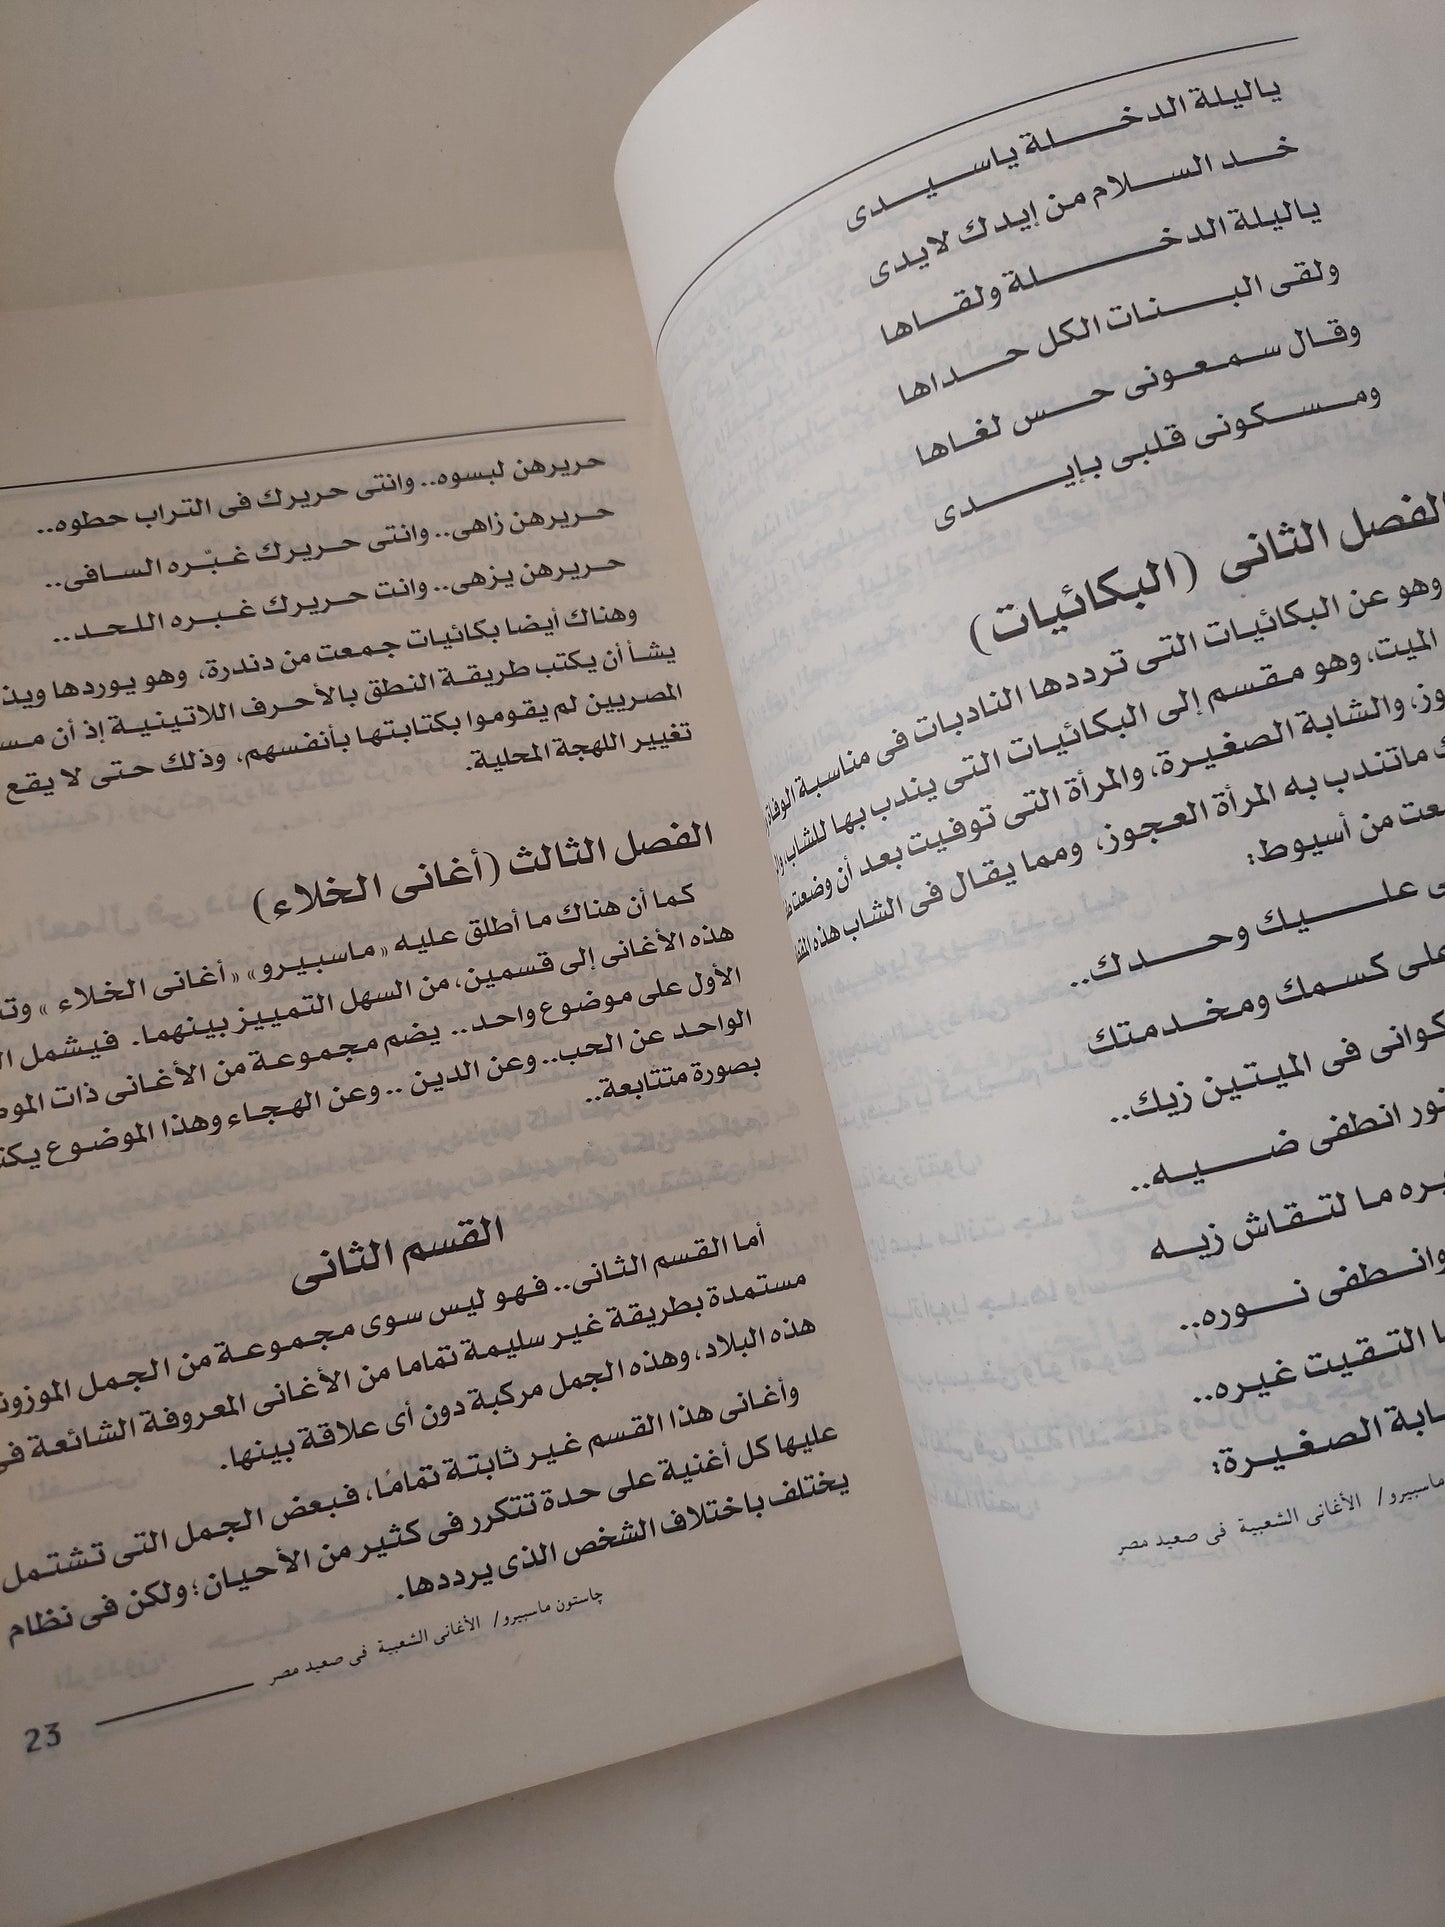 ياليلة الدخلة ياسيدى
خد السلام من إيدك لايدى
ياليلة الدخلة ولقاها
ولقى البنات الكل حداها
وقال سمعونى حس لغاها
ومسكونى قلبى بإيدى
الفصل الثانى (البكائيات)
وهو عن البكائيات التى ترددها النادبات فى مناسبة الوفاة
الميت، وهو مقسم إلى البكائيات التى يندب بها للشاب،
والشابة الصغيرة، والمرأة التى توفيت بعد أن وضعت
ماتندب به المرأة العجوز، ومما يقال فى الشاب هذه
من أسيوط:
عليك وحدك..
على كسمك ومخدمتك
فى الميتين زيك..
نور انطفى ضيه..
ما لتقاش زيه
وانطفى نوره..
التقيت غيره..
الصغيرة:
ماسبيرو/ الأغانى الشعبية فى صعيد مصر
حريرهن لبسوه.. وانتى حريرك فى التراب حطوه..
حريرهن زاهى.. وانتى حريرك غبّره السافى..
حريرهن يزهى.. وانت حريرك غبره اللحد..
وهناك أيضا بكائيات جمعت من دندرة، وهو يوردها
يشأ أن يكتب طريقة النطق بالأحرف اللاتينية إذ أن
المصريين لم يقوموا بكتابتها بأنفسهم، وذلك حتى لا يقع
تغيير اللهجة المحلية.
الفصل الثالث (أغانى الخلاء)
كما أن هناك ما أطلق عليه «ماسبيرو» «أغانى الخلاء»
هذه الأغانى إلى قسمين، من السهل التمييز بينهما. فيشمل
الأول على موضوع واحد.. يضم مجموعة من الأغانى ذات
الواحد عن الحب.. وعن الدين .. وعن الهجاء وهذا الموضوع
بصورة متتابعة..
القسم الثانى
أما القسم الثانى.. فهو ليس سوى مجموعة من الجمل
مستمدة بطريقة غير سليمة تماما من الأغانى المعروفة الشائعة فى
هذه البلاد، وهذه الجمل مركبة دون أى علاقة بينها.
وأغانى هذا القسم غير ثابتة تمامًا، فبعض الجمل التى تشتمل
عليها كل أغنية على حدة تتكرر فى كثير من الأحيان؛ ولكن فى نظام
يختلف باختلاف الشخص الذى يرددها.
جاستون ماسبيرو/ الأغانى الشعبية فى صعيد مصر
23